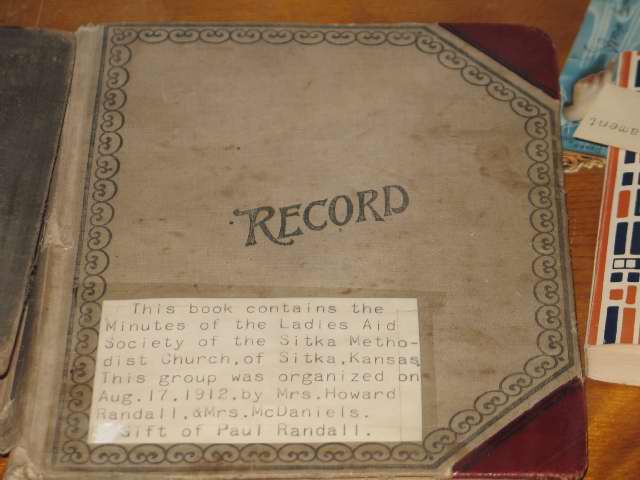 RECORD
This book contains the
Minutes of the Ladies Aid
Society of the Sitka Metho-
dist Church,of Sitka,Kansas
This group was organized on
Aug.17,1912,by Mrs.Howard
Randall,&Mrs.McDaniels.
Gift of Paul Randall.